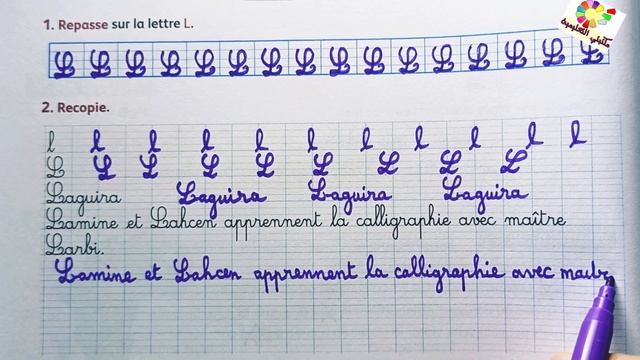 1. Repasse sur la lettre L.
L L L L L L L L L L L L L L L L
2. Recopie.
l l l l l l l l l l l
L L L L L L L L L
Laguira Laguira Laguira Laguira
Lamine et Lahcen apprennent la calligraphie avec maître
Larbi.
Lamine et Lahcen apprennent la calligraphie avec